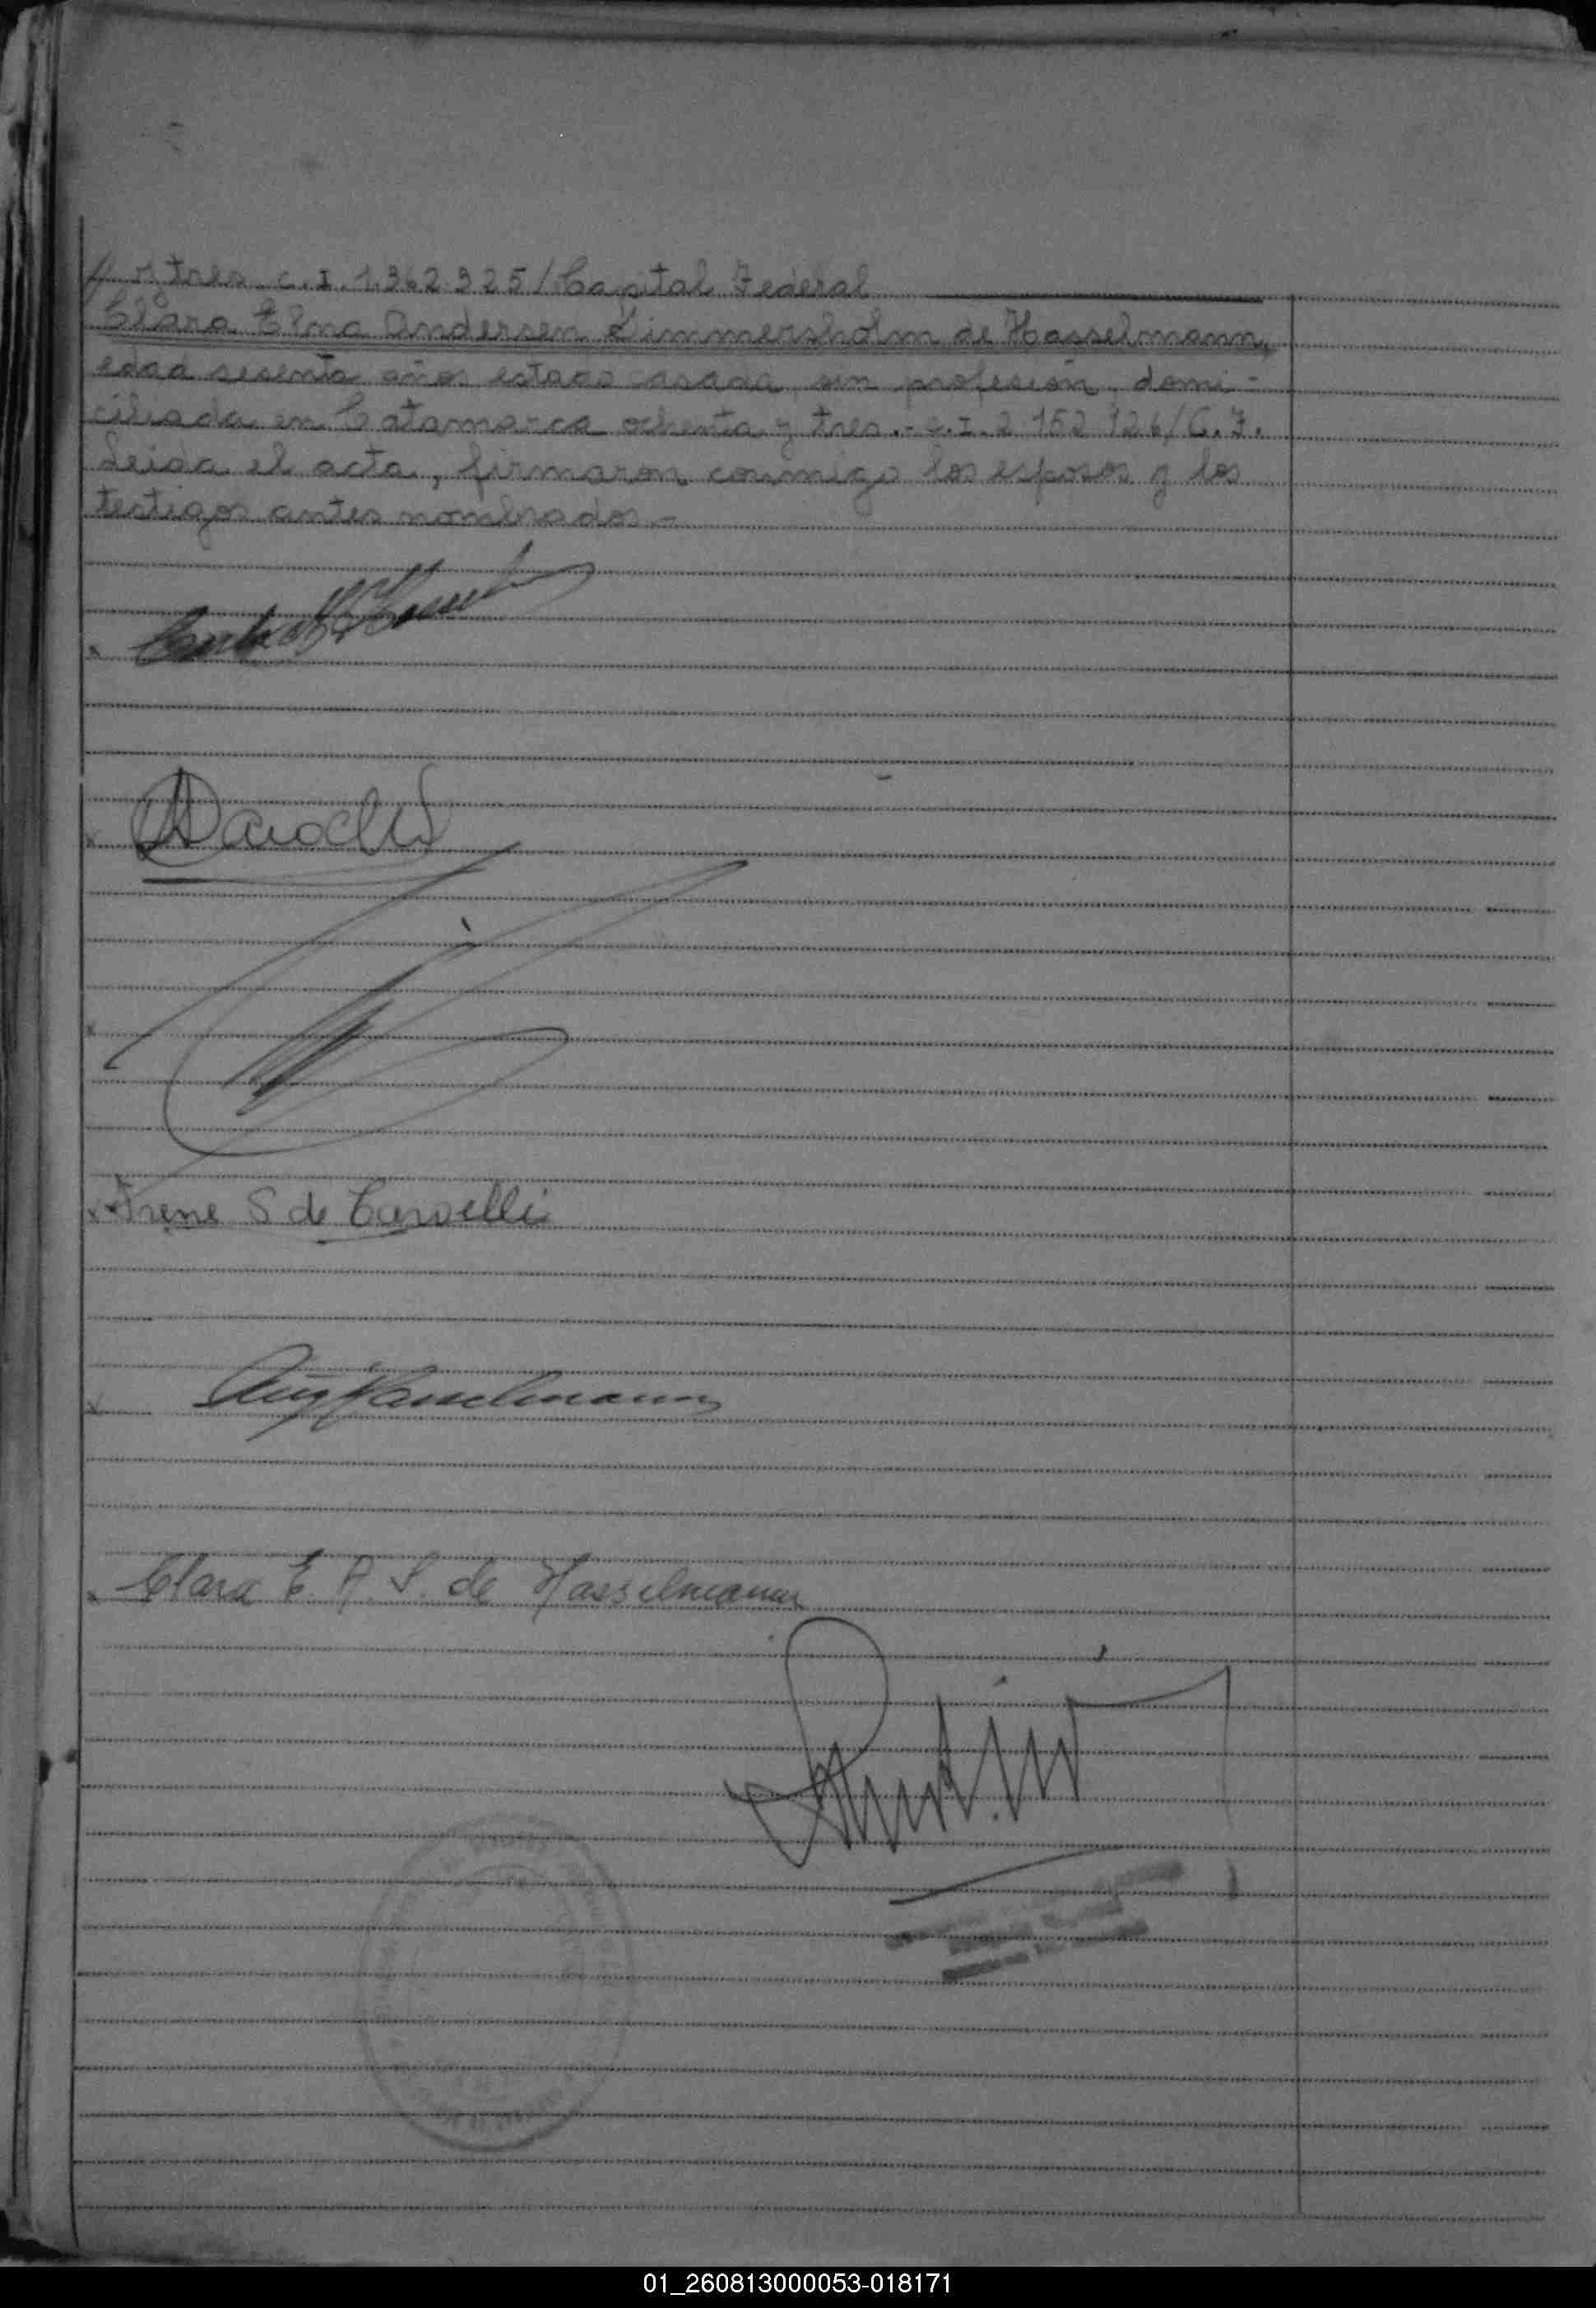 y tres. c.I. 1.362.325/Capital Federal
Clara Elna Andersen Simmersholm de Hasselmann,
edad sesenta años estado casada, sin profesión, domi-
ciliada en Catamarca ochenta y tres.- c.I. 2.152.126/C.F.
Leida el acta, firmaron conmigo los esposos y los
testigos antes nombrados.-
Irene S de Carvelli
Aug Hasselmann
Clara E. A. S. de Hasselmann
01_260813000053-018171